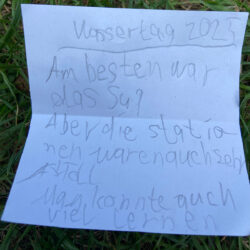 Wassertag 2025
Am besten war
das
Aber die statio
nen waren auch sehr
Man konnte auch
viel lernen